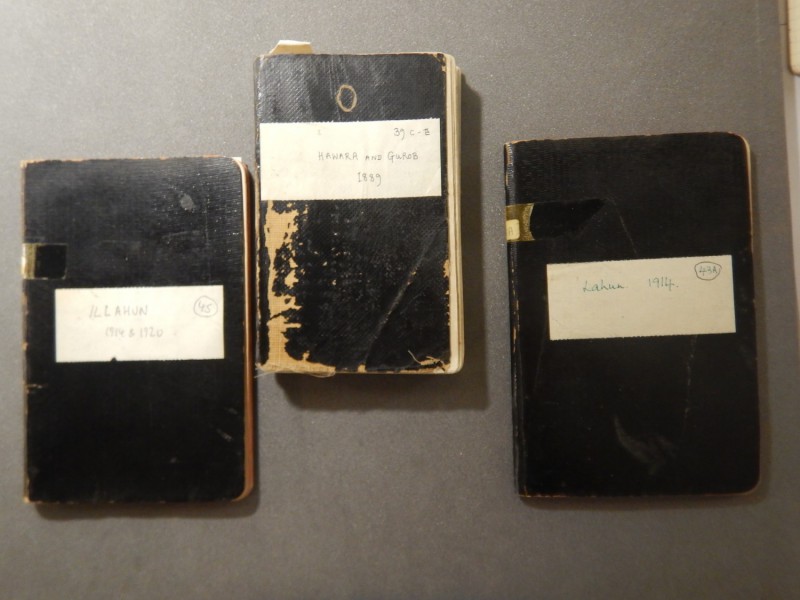 ILLAHUN 45
1914 & 1920
39 C-E
HAWARA AND GUROB
1889
Lahun 1914. 43A